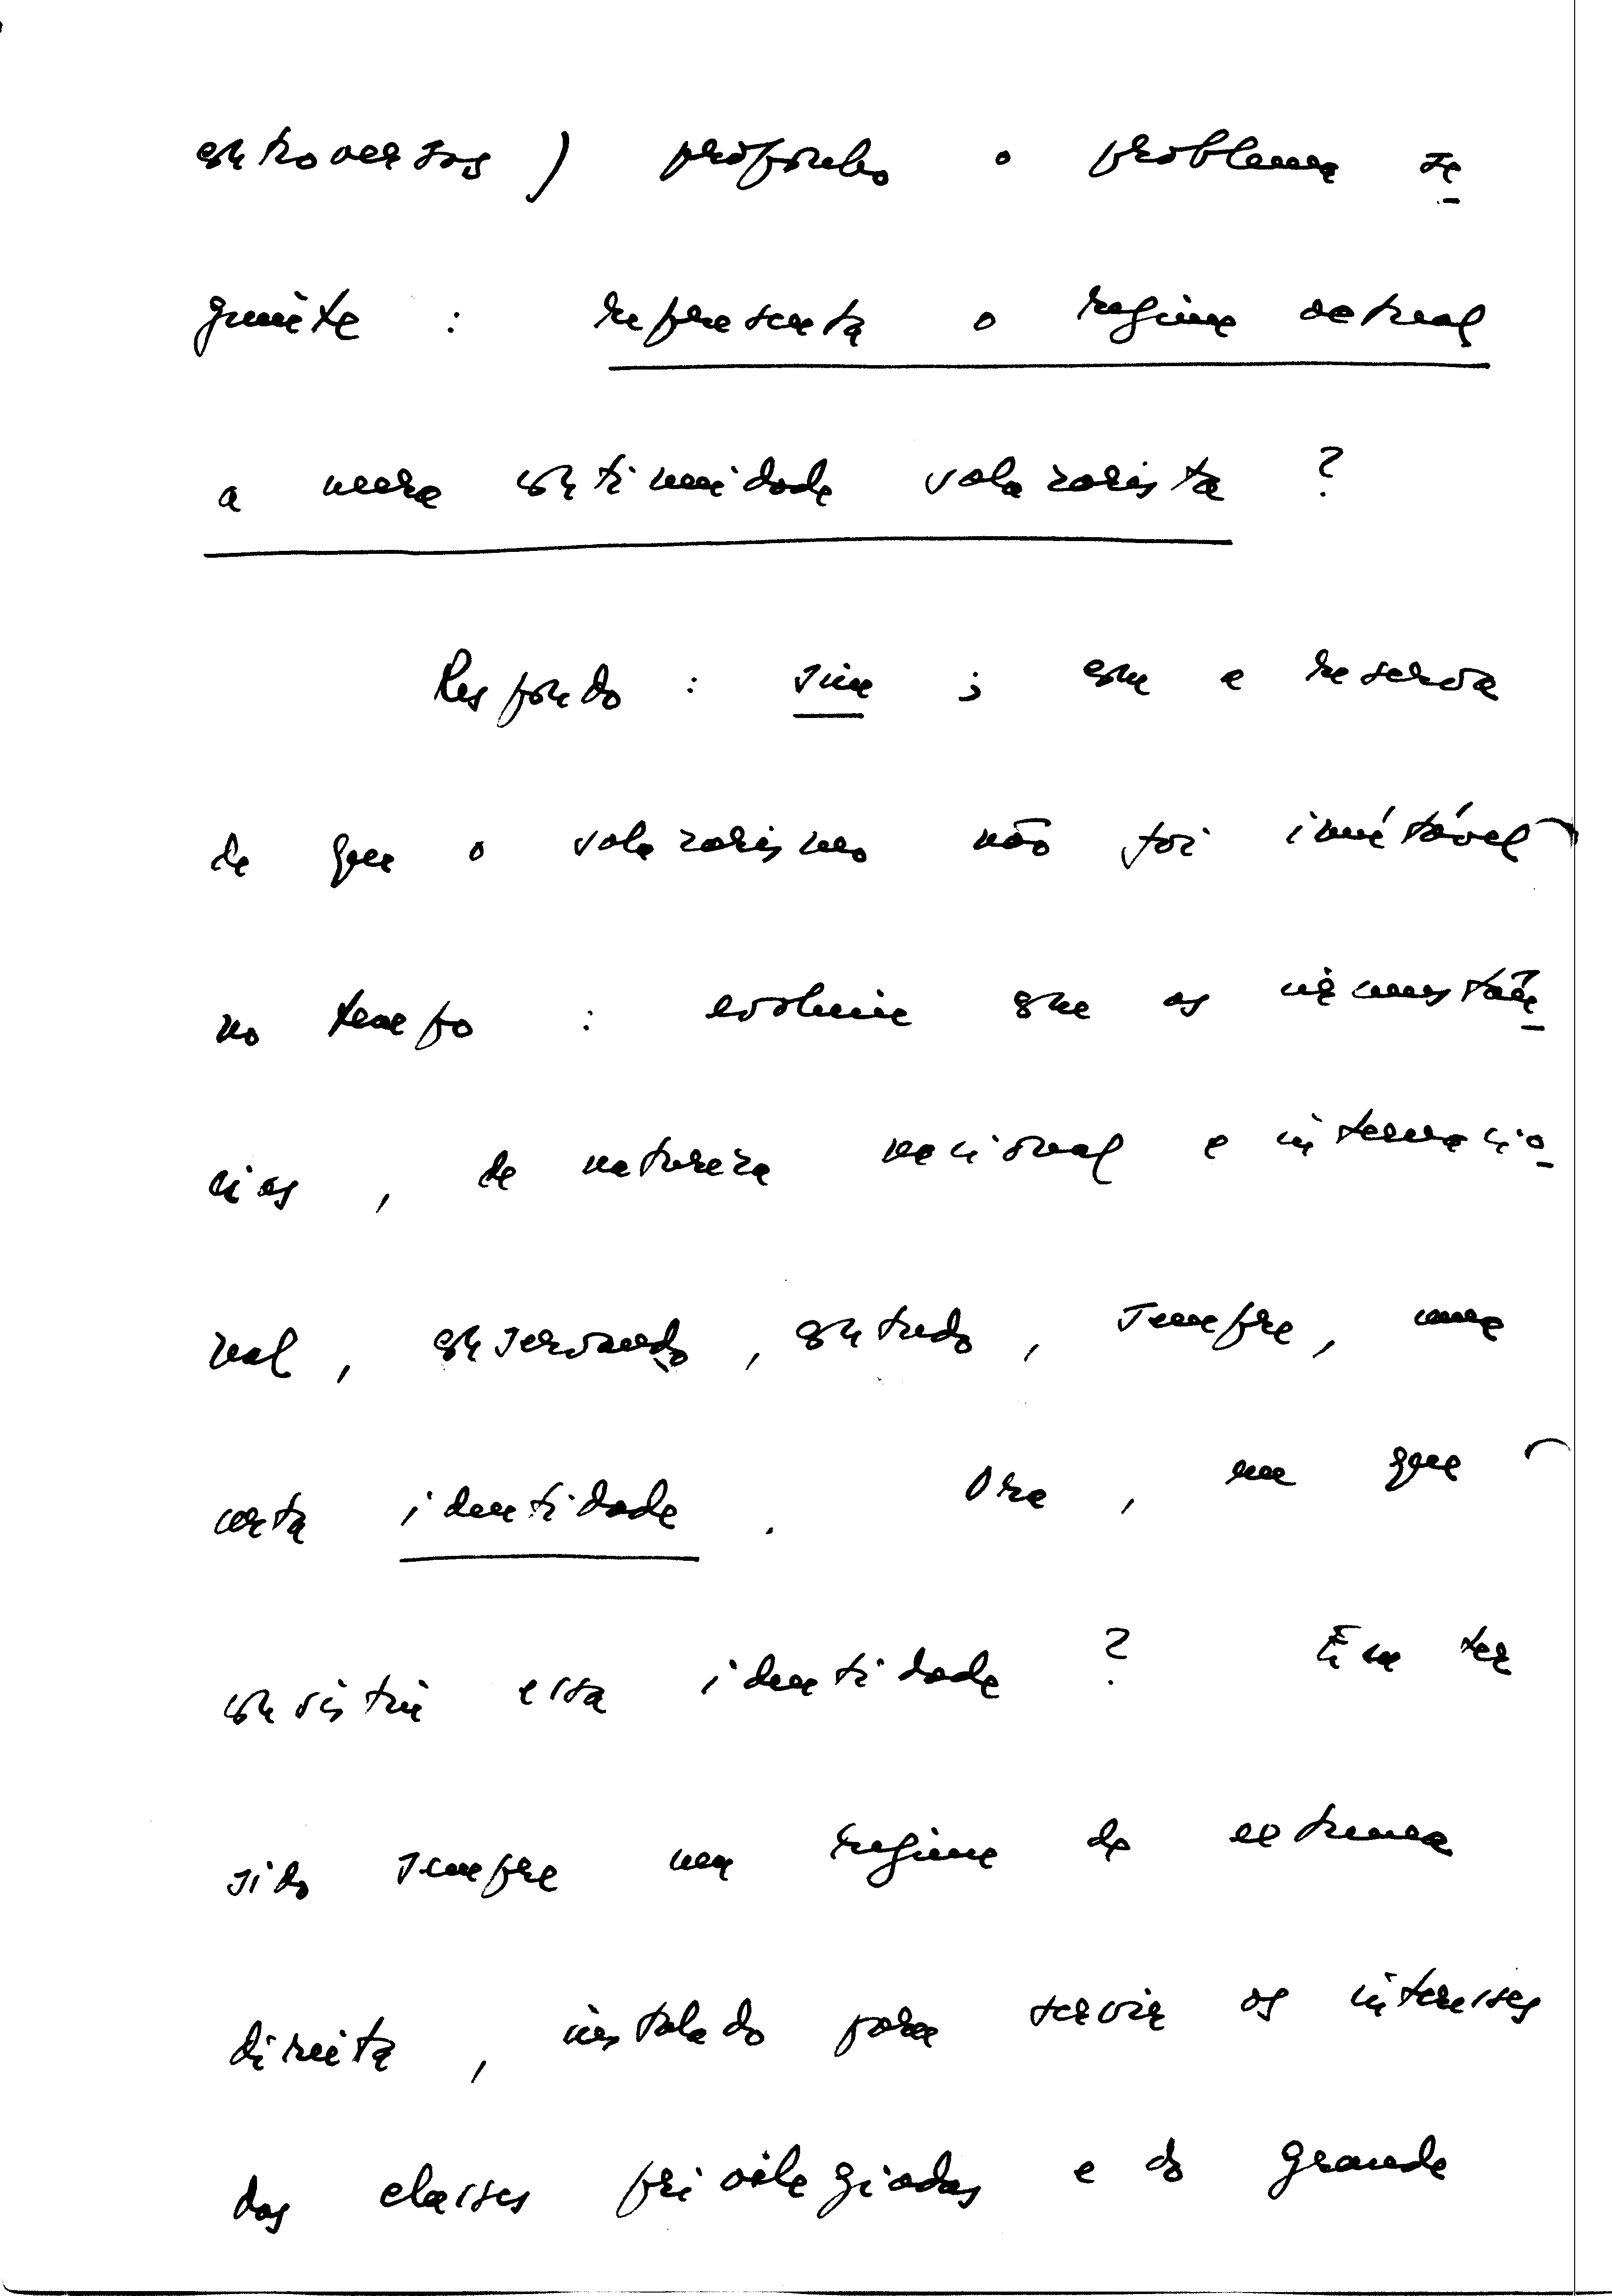 controversos) profundo o problema se
guinte : representa o regime actual
a mera continuidade salazarista ?
Respondo : sim ; com a reserva
de que o salazarismo não foi imutável
no tempo : evoluiu com as circunstân
cias , de natureza nacional e internacio
nal , conservando , contudo , sempre , uma
certa identidade . Ora , em que
consistiu essa identidade ? Em ter
sido sempre um regime de extrema
direita , instalado para servir os interesses
das classes privilegiadas e do grande